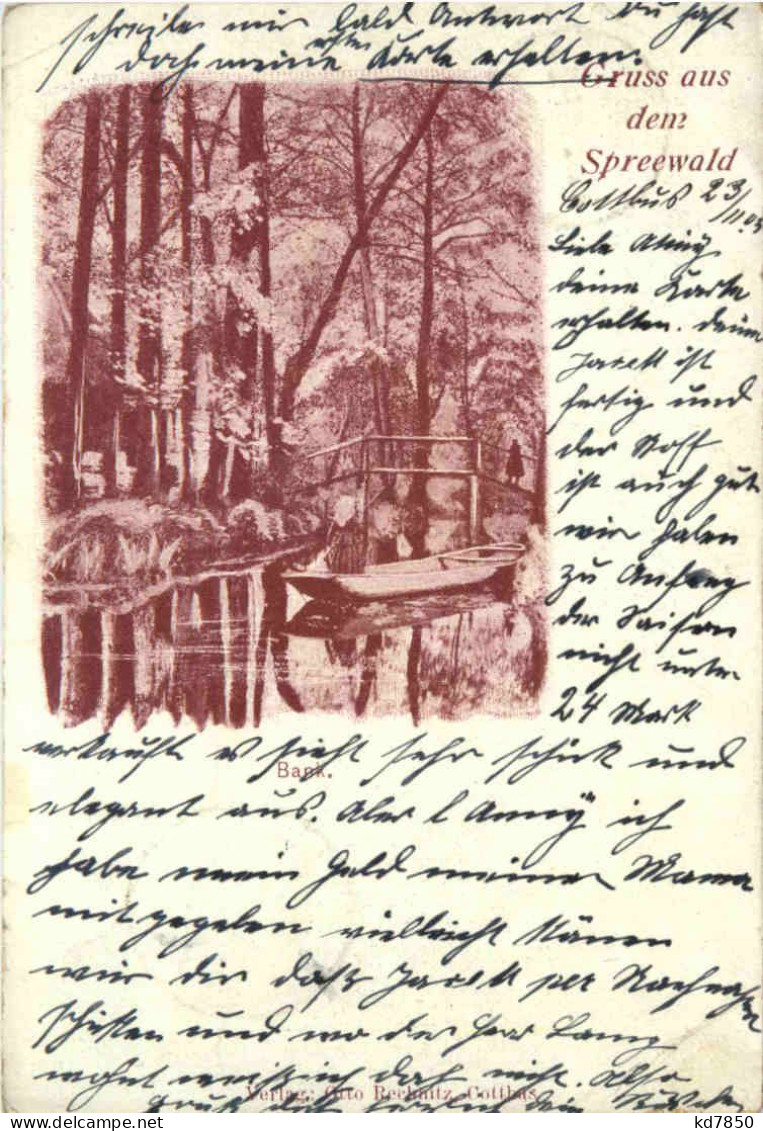 schreibe mir bald Antwort du hast
doch meine ersten Karte erhalten.
Gruss aus
dem
Spreewald
Cottbus 23/11.03
Liebe Anny
deine Karte
erhalten. deine
Jackett ist
fertig und
der Stoff
ist auch gut
wir haben
zu Anfang
der Saison
nicht unter
24 Mark
verkauft es sieht sehr schick und
elegant aus. Aber l Anny ich
habe mein Geld meiner Mama
mit gegeben vielleicht können
wir dir daß Jackett per Nachnahme
schicken und wo der Herr Lang
wohnt weiß ich doch nicht. Also
Gruß dich herzlich dein
Bank.
Verlag: Otto Rechnitz, Cottbus
kd7850